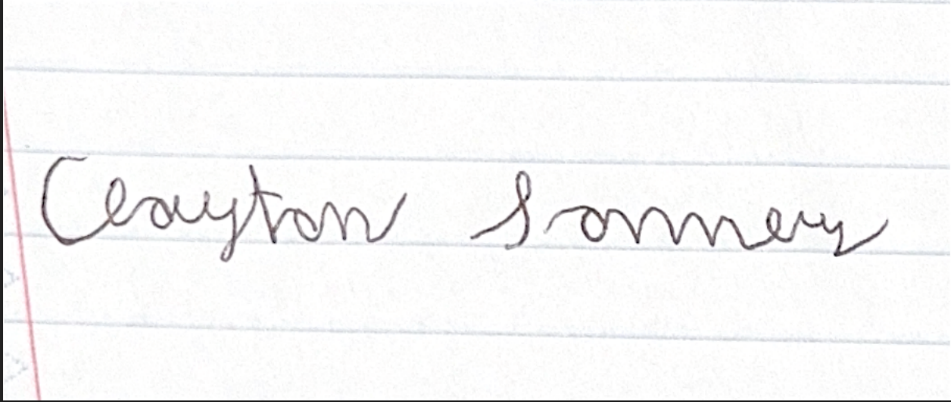 Clayton Sommers